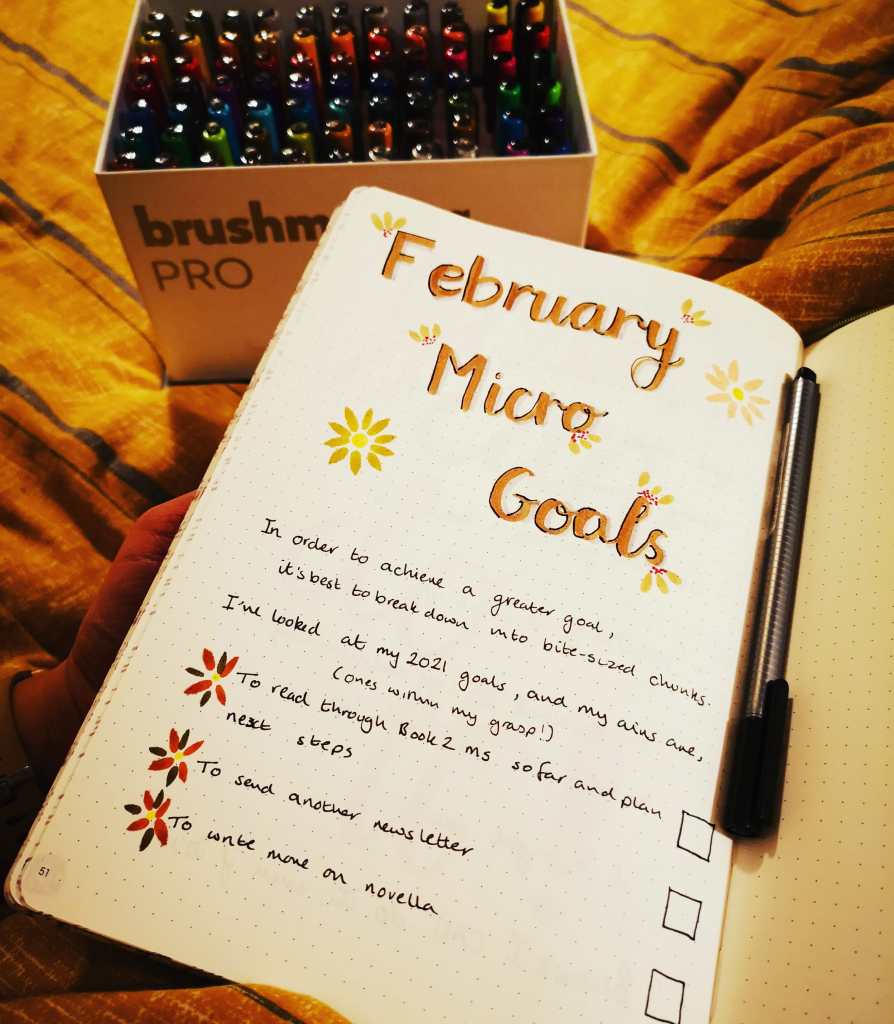 brushm
PRO
February
Micro
Goals
In order to achieve a greater goal,
it's best to break down into bite-sized chunks.
I've looked at my 2021 goals, and my aims are,
(ones within my grasp!)
To read through Book 2 ms so far and plan
next steps
To send another newsletter
To write more on novella
51